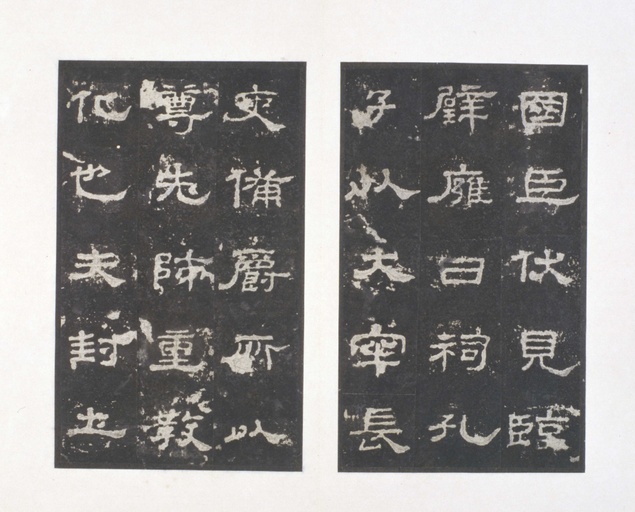 國臣伏見臨
璧廱日祠孔
子以大牢長
吏備爵所以
尊先師重教
化也夫封土